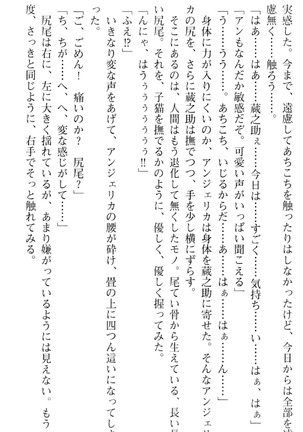 実感した。今まで、遠慮してあちこちを触ったりはしなかったけど、今日からは全部を遠
慮無く……触ろう……。
「はぁ……はぁ……蔵之助ぇ……今日は……すごく……気持ち……い……はぁ、はぁ」
「アンもなんだか敏感だぞ。可愛い声がいっぱい聞こえる」
「う……うう……あちこち、いじるからだ……あっ……はぁ……はぁ……ん……」
身体に力が入りにくいのか、アンジェリカは身体を蔵之助に寄せた。そんなアンジェリ
カの尻を、さらに蔵之助は撫でつつ、手を少し横にずらす。
そこにあるのは、人間はもう退化して無くしたモノ。尾てい骨から生えている、長い長
い尻尾。それを、子猫を撫でるかのように、優しく、優しく握ってみた。
「んにゃ、はうぅぅぅぅぅ！」
「ふえ!?」
いきなり変な声をあげて、アンジェリカの腰が砕け、畳の上に四つん這いになってしま
った。
「ご、ごめん！　痛いのか？　尻尾？」
「ち、ちが……へ、へ、変な感じがして……」
尻尾は右に、左に大きく揺れているが、あまり嫌がっているようには見えない。もう一
度、さっきと同じように、右手でそっと触れてみる。